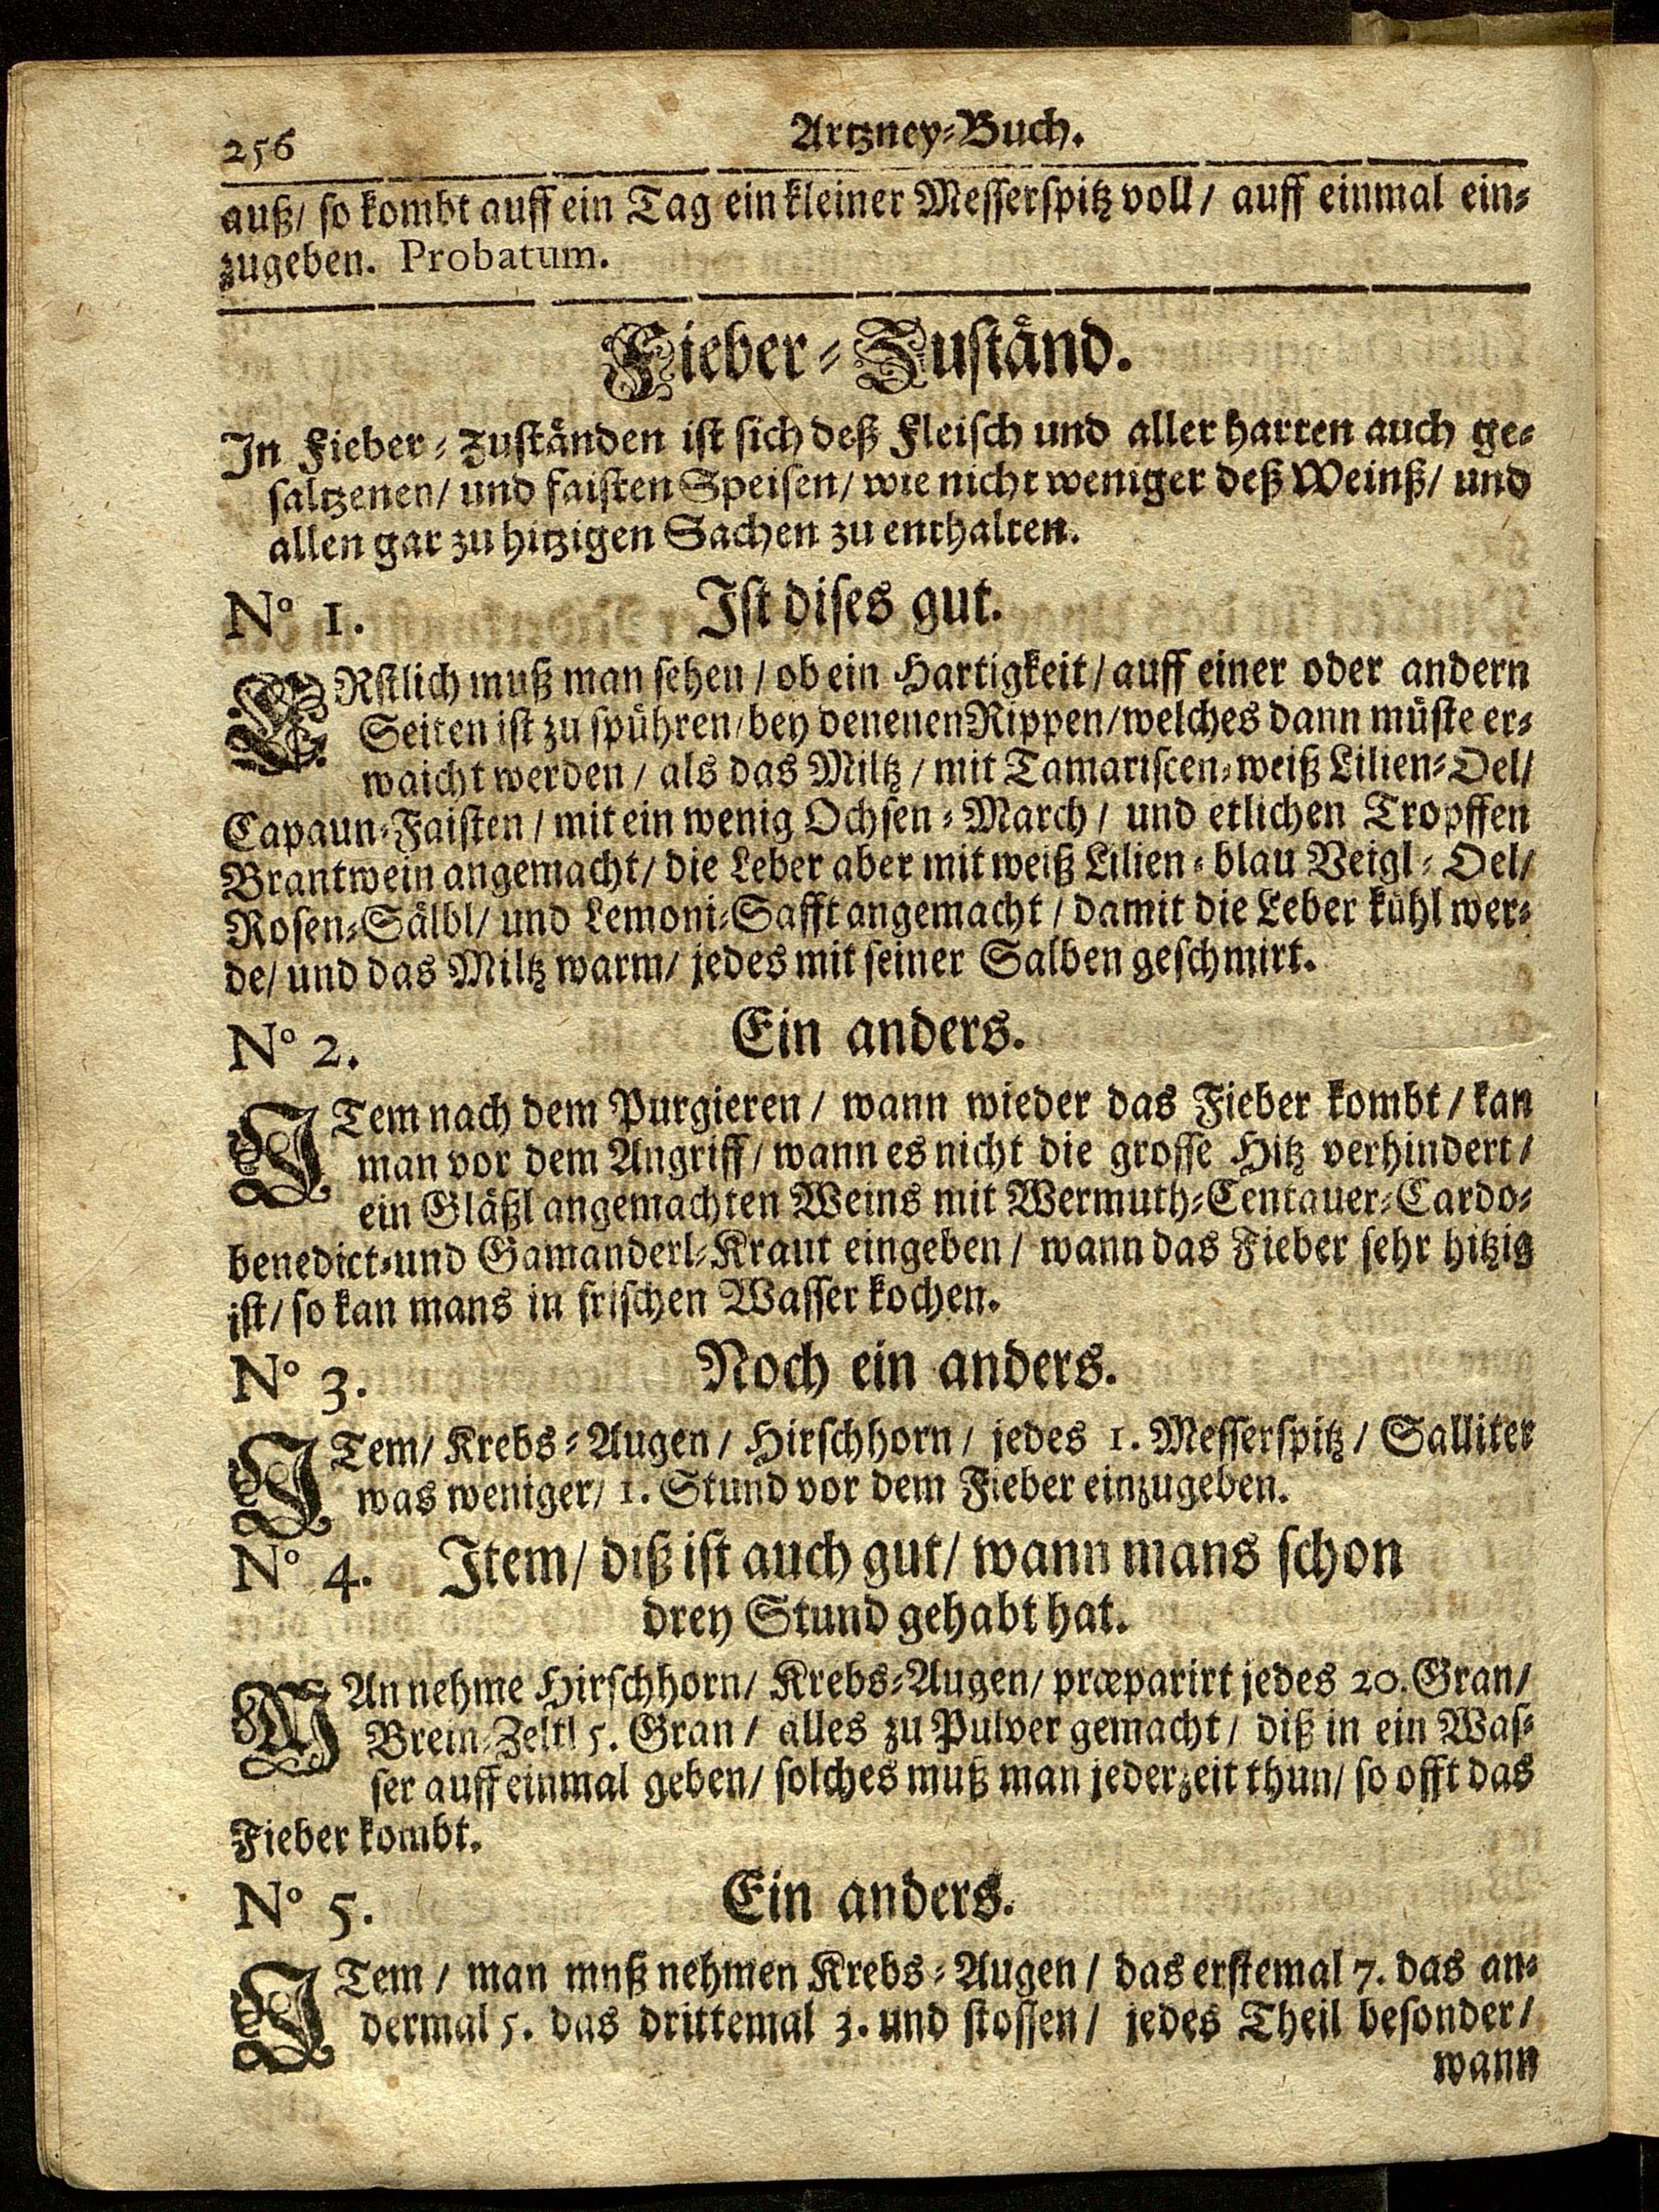 256 Artzney-Buch.
auß/ so kombt auff ein Tag ein kleiner Messerspitz voll/ auff einmal ein-
zugeben. Probatum.
Fieber-Zuständ.
In Fieber-Zuständen ist sich deß Fleisch und aller harten auch ge-
saltzenen/ und faisten Speisen/ wie nicht weniger deß Weinß/ und
allen gar zu hitzigen Sachen zu enthalten.
No 1. Ist dises gut.
ERstlich muß man sehen/ ob ein Hartigkeit/ auff einer oder andern
Seiten ist zu spühren/ bey denenen Rippen/ welches dann müste er-
waicht werden/ als das Miltz/ mit Tamariscen-weiß Lilien-Oel/
Capaun-Faisten/ mit ein wenig Ochsen-March/ und etlichen Tropffen
Brantwein angemacht/ die Leber aber mit weiß Lilien-blau Veigl-Oel/
Rosen-Sälbl/ und Lemoni-Safft angemacht/ damit die Leber kühl wer-
de/ und das Miltz warm/ jedes mit seiner Salben geschmirt.
No 2. Ein anders.
ITem nach dem Purgieren/ wann wieder das Fieber kombt/ kan
man vor dem Angriff/ wann es nicht die grosse Hitz verhindert/
ein Gläßl angemachten Weins mit Wermuth-Centauer-Cardo-
benedict-und Gamanderl-Kraut eingeben/ wann das Fieber sehr hitzig
ist/ so kan mans in frischen Wasser kochen.
No 3. Noch ein anders.
ITem/ Krebs-Augen/ Hirschhorn/ jedes 1. Messerspitz/ Salliter
was weniger/ 1. Stund vor dem Fieber einzugeben.
No 4. Item/ diß ist auch gut/ wann mans schon
drey Stund gehabt hat.
MAn nehme Hirschhorn/ Krebs-Augen/ præparirt jedes 20. Gran/
Brein-Zeltl 5. Gran/ alles zu Pulver gemacht/ diß in ein Was-
ser auff einmal geben/ solches muß man jederzeit thun/ so offt das
Fieber kombt.
No 5. Ein anders.
ITem/ man mnß nehmen Krebs-Augen/ das erstemal 7. das an-
dermal 5. das drittemal 3. und stossen/ jedes Theil besonder/
wann